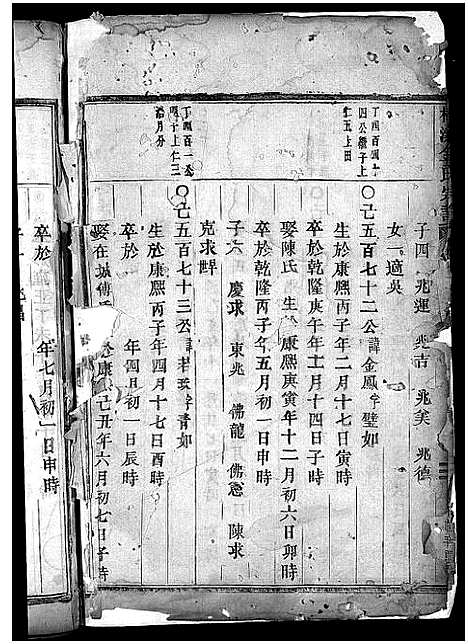 子四 兆運 兆吉 兆美 兆德
女一適吳
丁四百四十
四公繼子上
仁五上田
己五百七十二公諱金鳳字璧如
生於康熙丙子年二月十七日寅時
卒於乾隆庚午年十一月十四日子時
娶陳氏 生於康熙庚寅年十二月初六日卯時
卒於乾隆丙子年五月初一日申時
子六 慶求 東兆 佛龍 佛 陳求
克求
丁四百一公
子上仁三
拾月分
己五百七十三公諱若 字青如
生於康熙丙子年四月十七日酉時
卒於 年四月初一日辰時
娶在城傅氏 康 己丑年六月初七日子時
卒於 年七月初一日申時